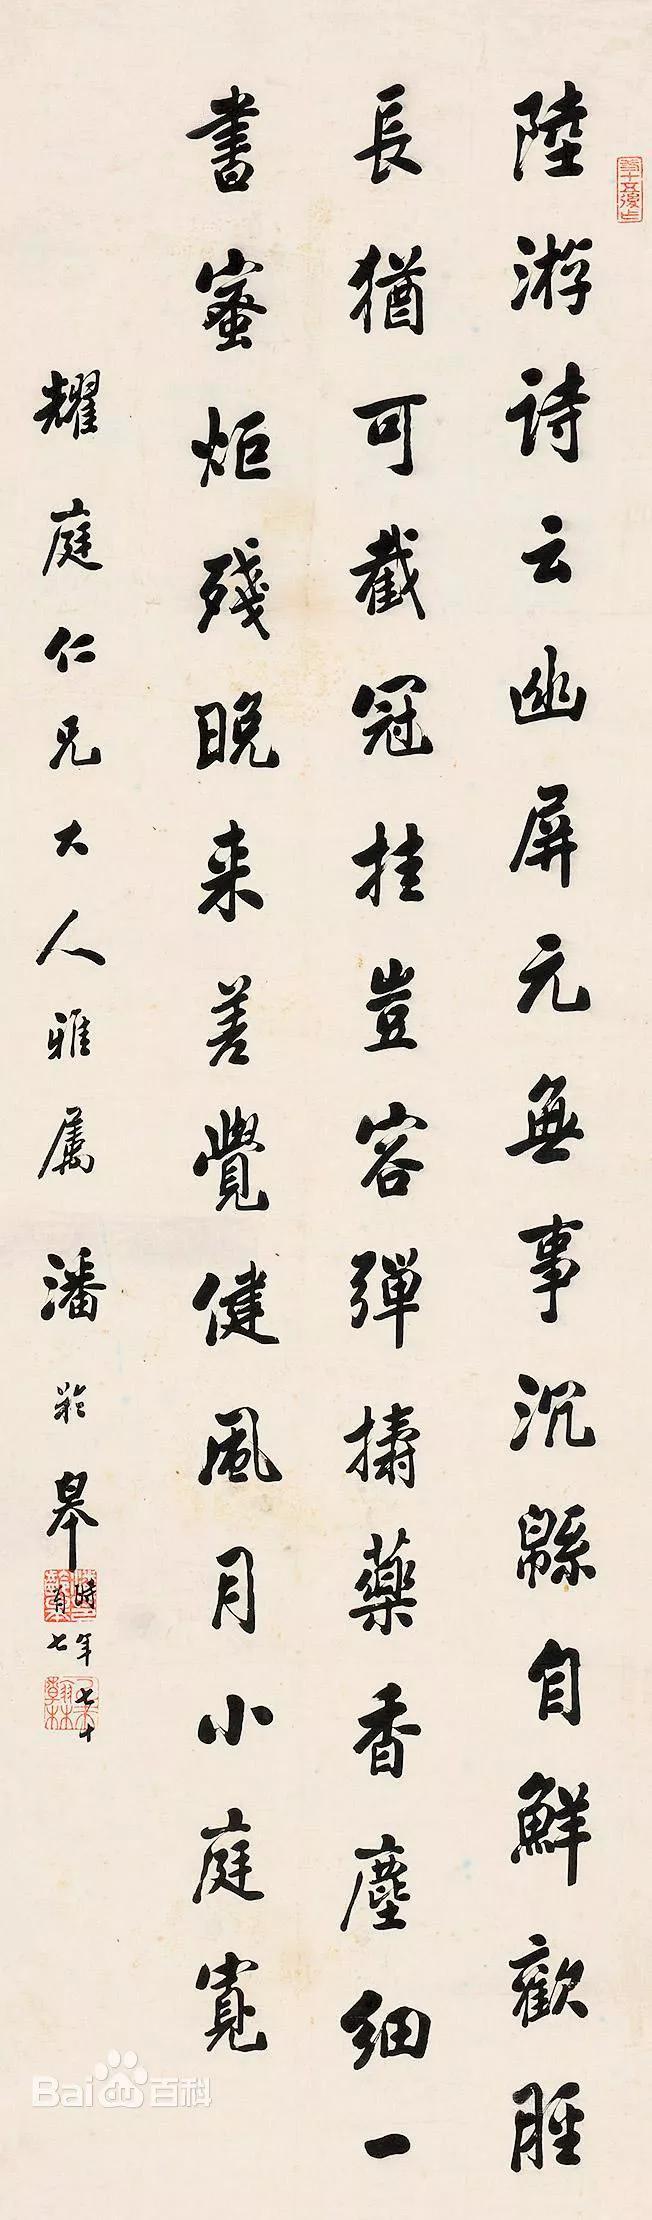 陸游詩云幽屏元無事沉緜自鮮歡脛
長猶可截冠挂豈容彈擣藥香塵細一
書蜜炬殘晚来善覺健風月小庭寬
耀庭仁兄大人雅屬 潘齡皋
時年七十
有七
Bai百科